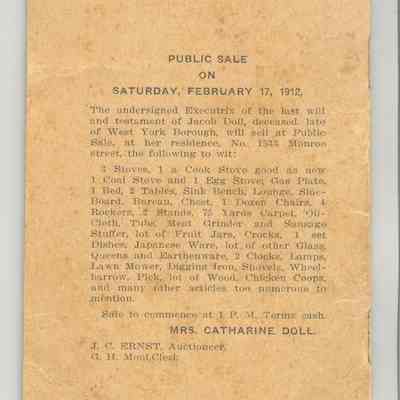 PUBLIC SALE
ON
SATURDAY, FEBRUARY 17, 1912,
The undersigned Executrix of the last will
and testament of Jacob Doll, deceased, late
of West York Borough, will sell at Public
Sale, at her residence, No. 1533 Monroe
street, the following to wit:
3 Stoves, 1 a Cook Stove good as new
1 Coal Stove and 1 Egg Stove; Gas Plate,
1 Bed, 2 Tables, Sink Bench, Lounge,
Board, Bureau, Chest, 1 Dozen Chairs, 4
Rockers, 2 Stands, 75 Yards Carpet, Oil-
Cloth, Tubs, Meat Grinder and Sausage
Stuffer, lot of Fruit Jars, Crocks, 1 set
Dishes, Japanese Ware, lot of other Glass,
Queens and Earthenware, 2 Clocks, Lamps,
Lawn Mower, Digging Iron, Shovels, Wheel-
barrow, Pick, lot of Wood, Chicken Coops,
and many other articles too numerous to
mention.
Sale to commence at 1 P. M. Terms cash.
MRS. CATHARINE DOLL.
J. C. ERNST, Auctioneer,
G. H. Clerk.